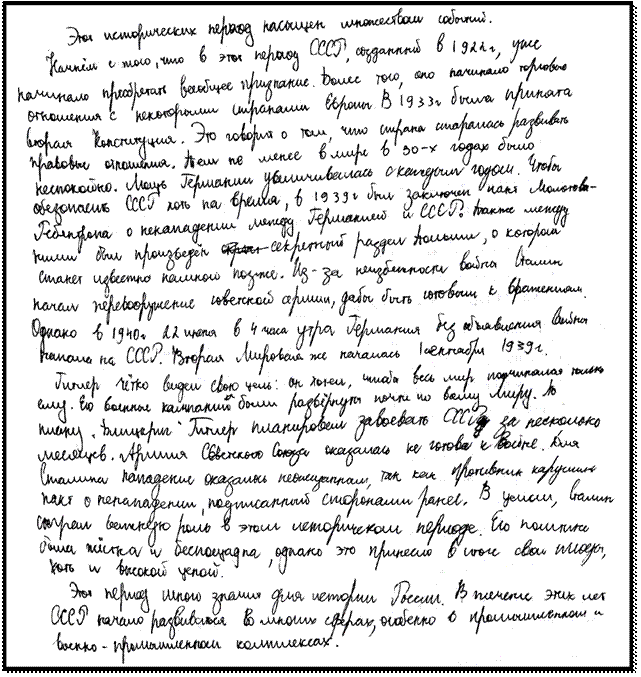 Этот исторических период насыщен множеством событий.
Начнём с того, что в этот период СССР, созданный в 1922г, уже
начинало преобретать всеобщее признание. Более того, оно начинало торговые
отношения с некоторыми странами Европы. В 1933г была принята
вторая Конституция. Это говорит о том, что страна старалась развивать
правовые отношения. Тем не менее в мире в 30-х годах было
неспокойно. Мощь Германии увеличивалась с каждым годом. Чтобы
обезопасить СССР хоть на время, в 1939г был заключен пакт Молотова-
Риббентропа о ненападении между Германией и СССР. Также между
ними был произведён секретный раздел Польши, о котором
станет известно намного позже. Из-за неизбежности войны Сталин
начал перевооружение советской армии, дабы быть готовым к вражениям.
Однако в 1940г 22 июня в 4 часа утра Германия без объявления войны
напала на СССР. Вторая Мировая же началась 1 сентября 1939г.
Гитлер чётко видел свою цель: он хотел, чтобы весь мир подчинялся только
ему. Его военные кампании были развёрнуты почти по всему миру. По
плану "Блицкриг" Гитлер планировал завоевать СССР за несколько
месяцев. Армия Советского Союза оказалась не готова к войне. Для
Сталина нападение оказалось неожиданным, так как противник нарушил
пакт о ненападении, подписанный сторонами ранее. В целом, Сталин
сыграл важную роль в этом историческом периоде. Его политика
была жёстка и беспощадна, однако это принесло в итоге свои плоды,
хоть и высокой ценой.
Этот период много значил для истории России. В течение этих лет
СССР начало развиваться во многих сферах, особенно в промышленном и
военно-промышленном комплексах.